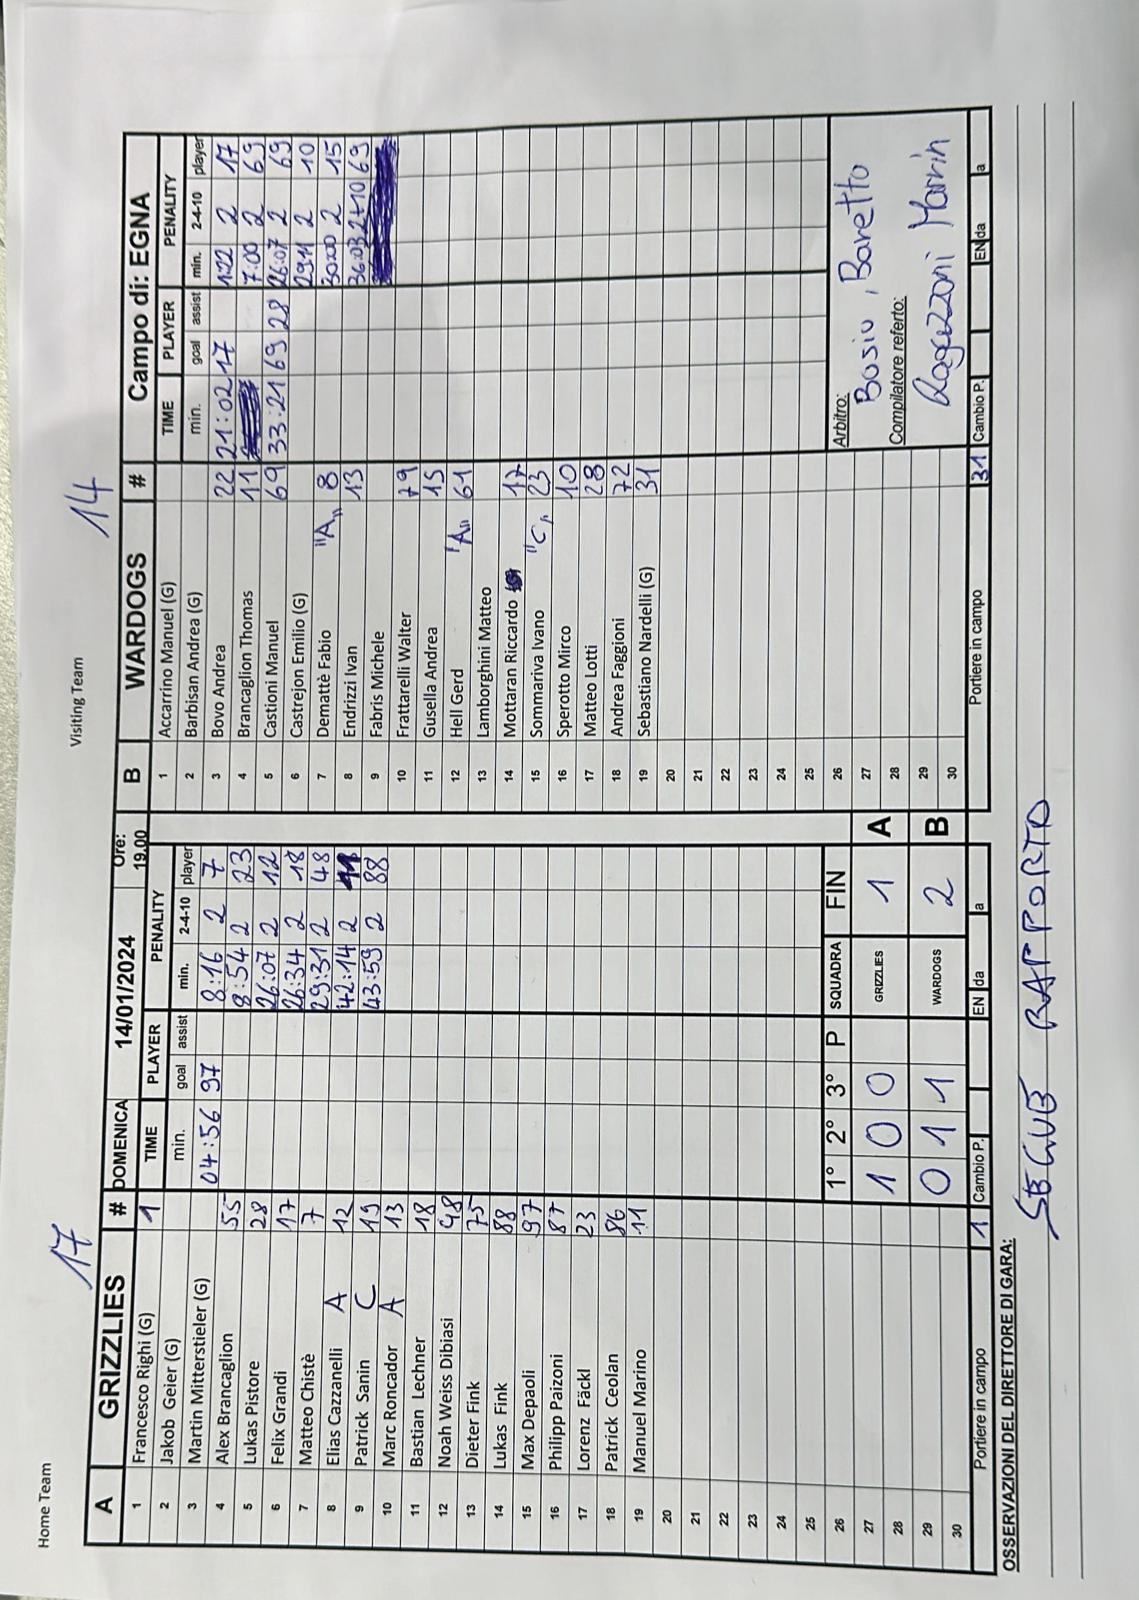 Home Team 17 Visiting Team 14
A GRIZZLIES # DOMENICA 14/01/2024 Ore: 19.00 B WARDOGS # Campo di: EGNA
TIME PLAYER PENALITY TIME PLAYER PENALITY
min. goal assist min. 2-4-10 player min. goal assist min. 2-4-10 player
1 Francesco Righi (G) 1
2 Jakob Geier (G)
3 Martin Mitterstieler (G) 04:56 97 8:16 2 7
4 Alex Brancaglion 55 8:54 2 23
5 Lukas Pistore 28 26:07 2 12
6 Felix Grandi 17 26:34 2 18
7 Matteo Chistè 7 29:31 2 48
8 Elias Cazzanelli A 12 42:14 2 11
9 Patrick Sanin C 19 43:59 2 88
10 Marc Roncador A 13
11 Bastian Lechner 18
12 Noah Weiss Dibiasi 48
13 Dieter Fink 75
14 Lukas Fink 88
15 Max Depaoli 97
16 Philipp Paizoni 87
17 Lorenz Fäckl 23
18 Patrick Ceolan 86
19 Manuel Marino 11
20
21
22
23
24
25
26
27
28
29
30
1° 2° 3° P SQUADRA FIN
1 0 0 GRIZZLIES 1 A
0 1 1 WARDOGS 2 B
Portiere in campo 1 Cambio P. EN da a
1 Accarrino Manuel (G)
2 Barbisan Andrea (G)
3 Bovo Andrea 22 21:02 17 1:22 2 17
4 Brancaglion Thomas 11 7:00 2 69
5 Castioni Manuel 69 33:21 69 28 26:07 2 69
6 Castrejon Emilio (G) 29:11 2 10
7 Demattè Fabio "A" 8 30:00 2 15
8 Endrizzi Ivan 13 36:03 2+10 69
9 Fabris Michele
10 Frattarelli Walter 79
11 Gusella Andrea 15
12 Hell Gerd "A" 61
13 Lamborghini Matteo
14 Mottaran Riccardo 17
15 Sommariva Ivano "C" 23
16 Sperotto Mirco 10
17 Matteo Lotti 28
18 Andrea Faggioni 72
19 Sebastiano Nardelli (G) 31
20
21
22
23
24
25
26
27
28
29
30
Arbitro:
Bosio, Baretto
Compilatore referto:
Ragazzoni Marvin
Portiere in campo 31 Cambio P. EN da a
OSSERVAZIONI DEL DIRETTORE DI GARA:
SEGUE RAPPORTO